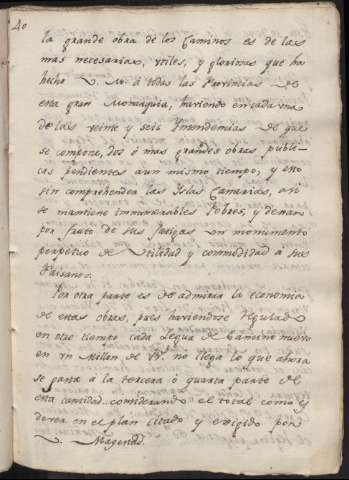 40
la grande obra de los Caminos es de las
mas necesarias, utiles, y gloriosas que ha
hecho V. M. á todas las Provincias de
esta gran Monarquia, haviendo en cada una
de las veinte y seis Intendencias de que
se compone, dos ó mas grandes obras publi-
cas pendientes a un mismo tiempo, y esto
sin comprehender las Islas Canarias, asi
se mantiene innumerables Pobres, y dexan
por fruto de sus fatigas un monumento
perpetuo de utilidad y commodidad a sus
Paisanos.
Por otra parte es de admirar la economia
de estas obras, pues haviendose regulado
en otro tiempo cada Legua de Camino nuevo
en un Millon de rs. no llega lo que ahora
se gasta á la tercera ó quarta parte de
esta cantidad considerando el total como se
dexa en el plan citado y exigido por
V. Magestad.